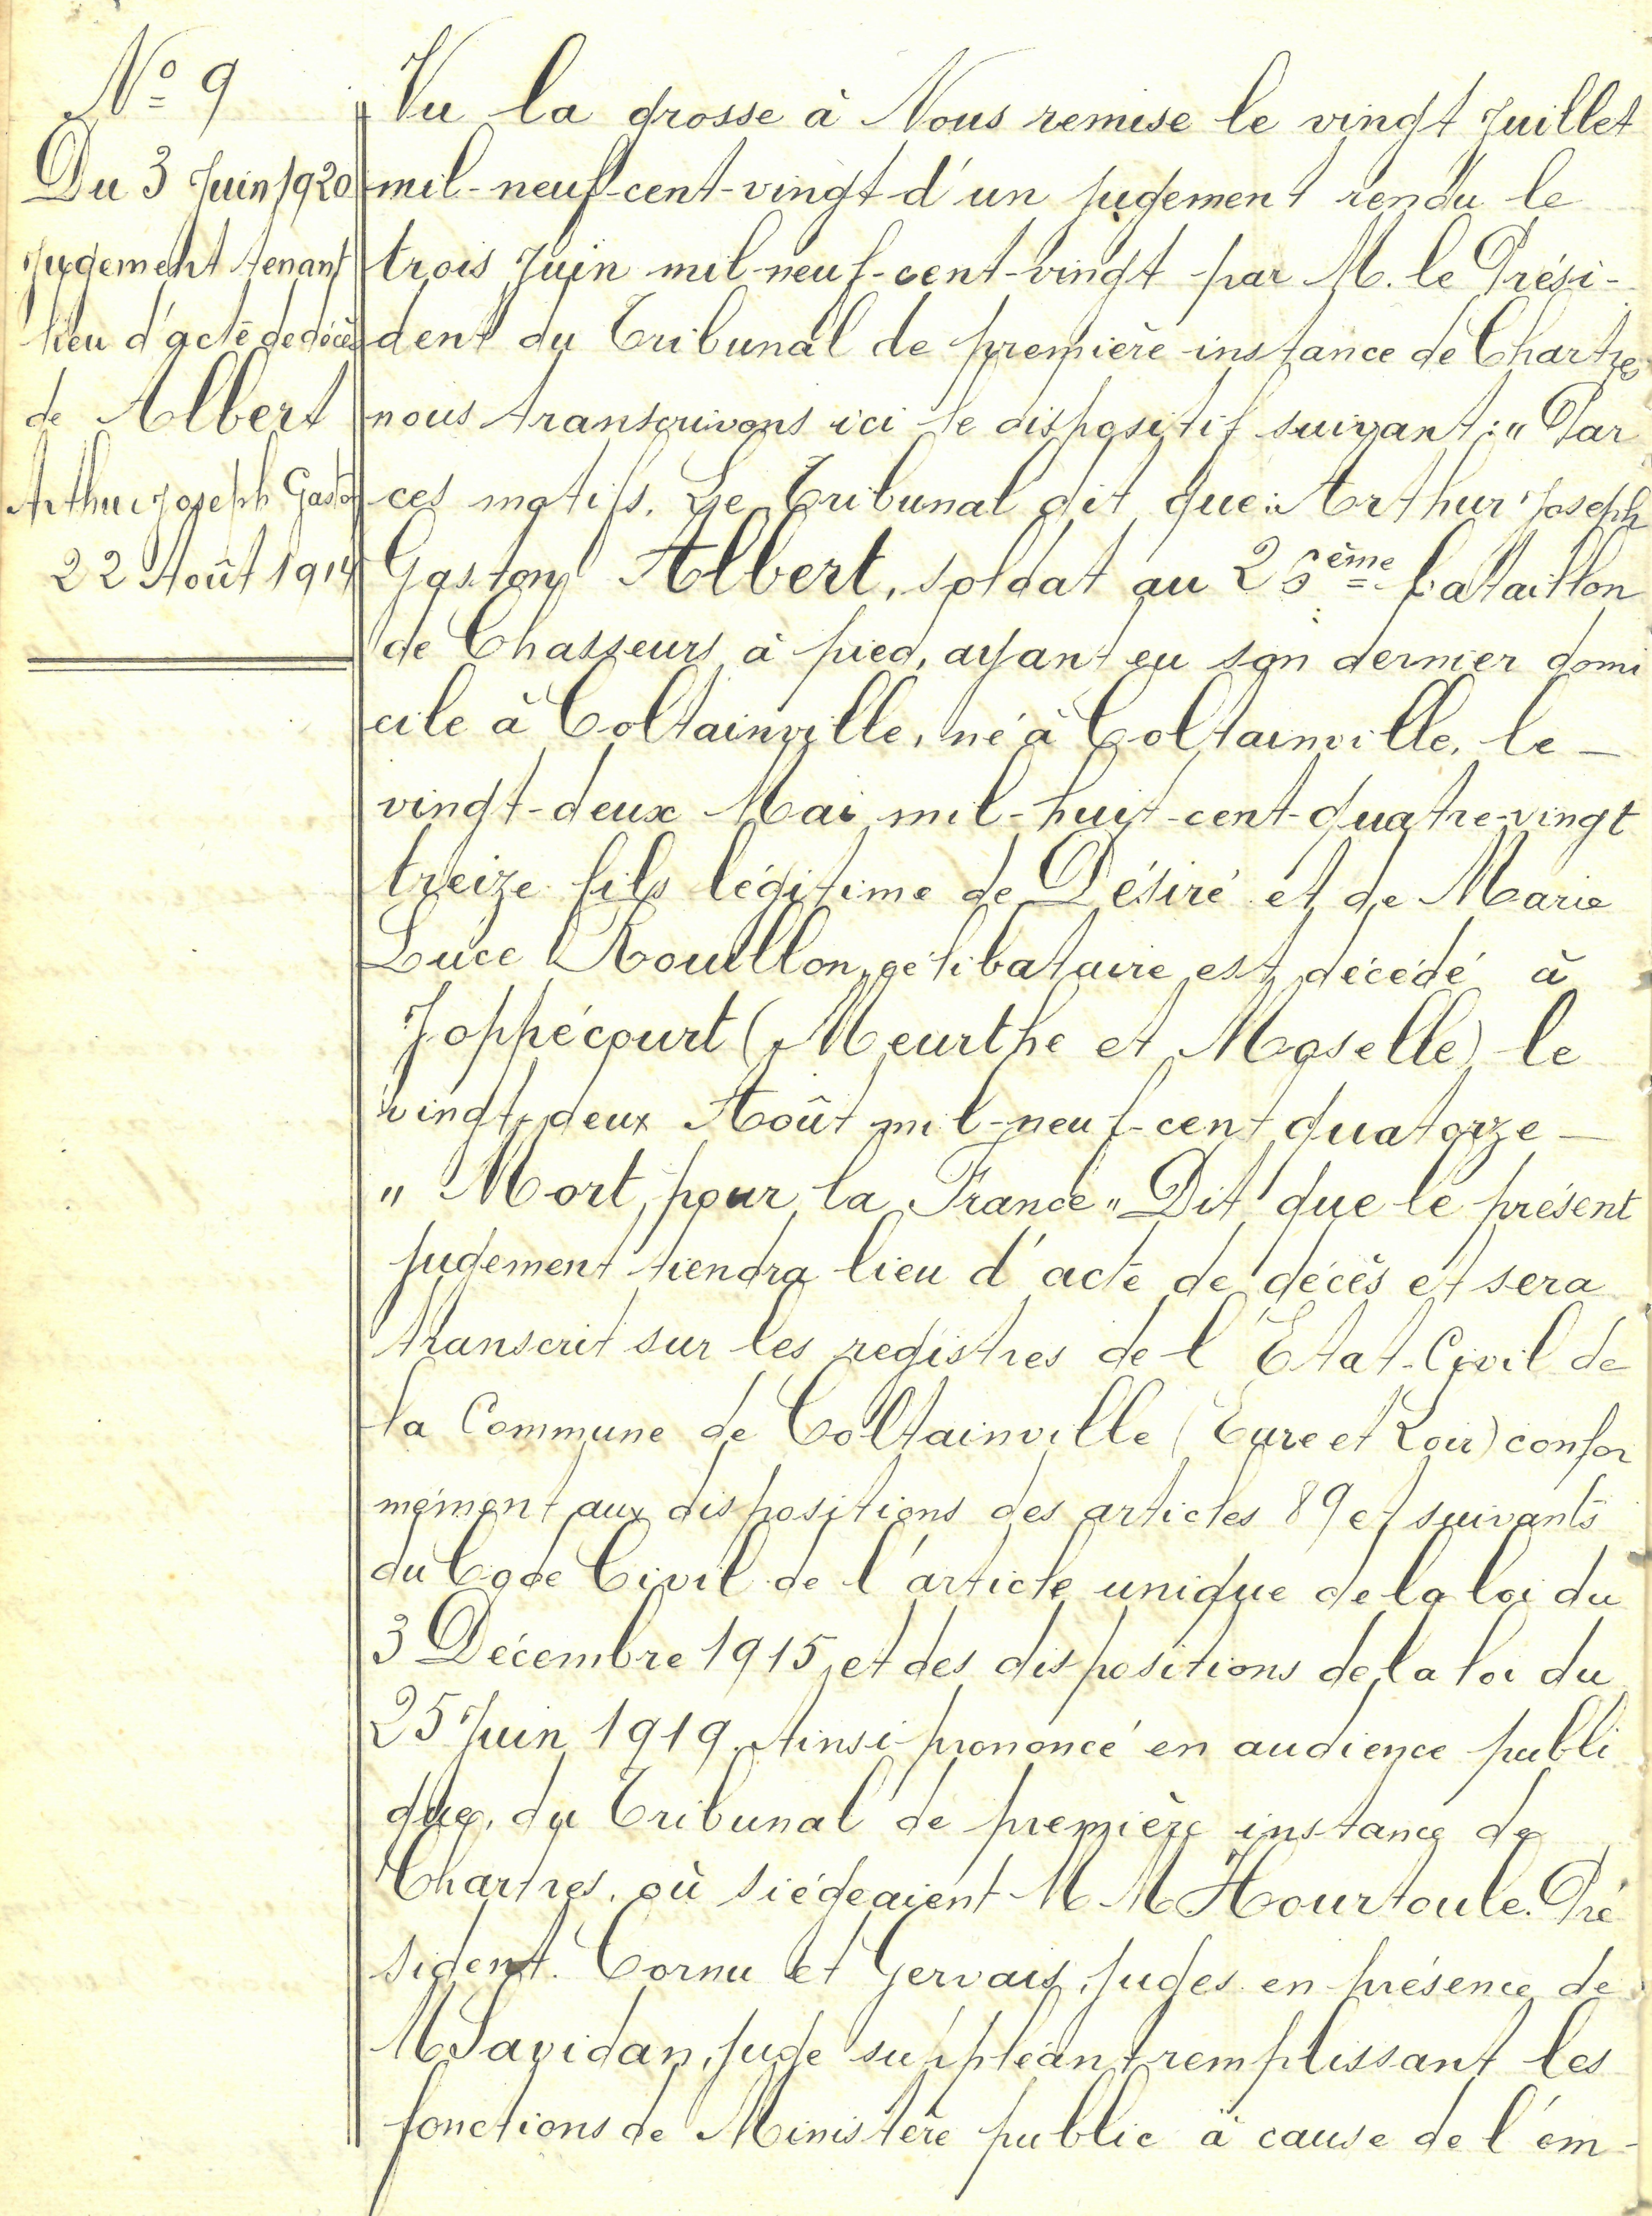 Nº 9
Du 3 Juin 1920
Jugement tenant
lieu d'acte de décès
de Albert
Arthur Joseph Gaston
22 Août 1914
Vu la grosse à Nous remise le vingt Juillet
mil-neuf-cent-vingt-d'un jugement rendu le
trois Juin mil-neuf-cent-vingt par M. le Prési-
dent du Tribunal de première instance de Chartres
nous transcrivons ici le dispositif suivant : " Par
ces motifs. Le Tribunal dit que : Arthur Joseph
Gaston Albert, soldat au ème bataillon
de Chasseurs à pied, ayant eu son dernier domi
cile à Coltainville, né à Coltainville, le -
vingt-deux Mai mil-huit-cent-quatre-vingt
treize fils légitime de Désiré et de Marie
Luce Rouillon, célibataire est décédé à
Joppécourt (Meurthe et Moselle) le
vingt-deux Août mil-neuf-cent quatorze -
" Mort pour la France " Dit que le présent
jugement tiendra lieu d'acte de décès et sera
transcrit sur les registres de l'Etat-Civil de
la Commune de Coltainville (Eure et Loir) confor
mément aux dispositions des articles 89 et suivants
du Code Civil de l'article unique de la loi du
3 Décembre 1915 et des dispositions de la loi du
25 Juin 1919. Ainsi prononcé en audience publi
que, du Tribunal de première instance de
Chartres, où siégeaient MM Hourtoule. Pré
sident. Cornu et Gervais, juges en présence de
M Savidan, juge suppléant remplissant les
fonctions de Ministère public à cause de l'em-